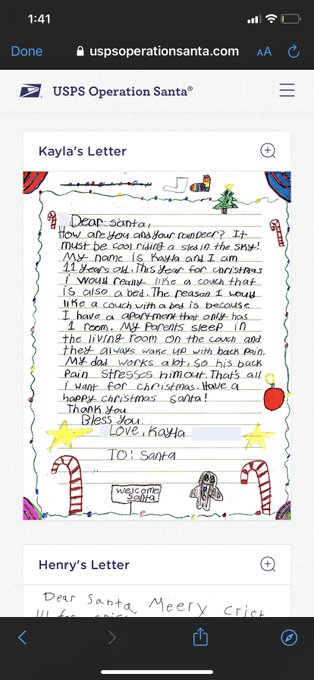 1:41
Done
uspsoperationsanta.com
AA
USPS Operation Santa®
Kayla's Letter
Dear santa,
How are you and your raindeer? It
must be cool riding a sled in the sky!
My name is Kayla and I am
11 years old. This year for christmas
I would really like a couch that
is also a bed. The reason I would
like a couch with a bed is because
I have a apartment that only has
1 room. My Parents sleep in
the living room on the couch and
they always wake up with back pain.
My dad works alot, so his back
Pain stresses him out. That's all
I want for christmas. Have a
happy christmas santa!
Thank you
Bless you.
Love, Kayla
TO: Santa
welcome
santa
Henry's Letter
Dear Santa, Meery Crist